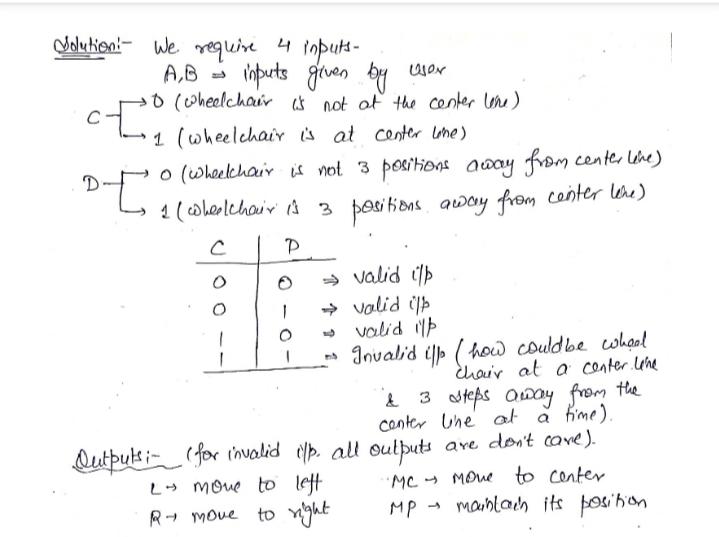 Solution:- We require 4 inputs-
A,B ⇒ inputs given by user
C → 0 (wheelchair is not at the center line)
→ 1 (wheelchair is at center line)
D → 0 (wheelchair is not 3 positions away from center line)
→ 1 (wheelchair is 3 positions away from center line)
C D
0 0 ⇒ valid i/p
0 1 ⇒ valid i/p
1 0 ⇒ valid i/p
1 1 ⇒ Invalid i/p (how could be wheel
chair at a center line
& 3 steps away from the
center line at a time).
Outputs:- (for invalid i/p. all outputs are don't care).
L → move to left MC → move to center
R → move to right MP → maintain its position